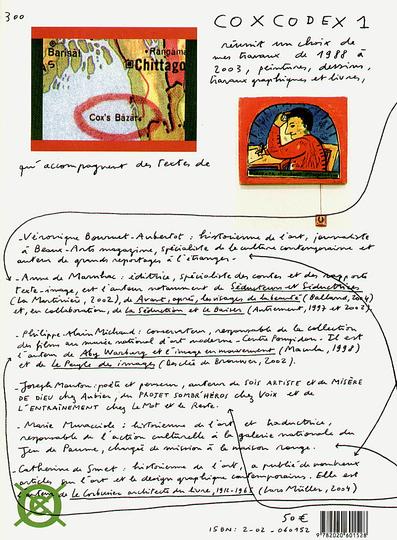 300
COXCODEX 1
réunit un choix de
mes travaux de 1988 à
2003, peintures, dessins,
travaux graphiques et livres,
Barisal
Rangama
Chittago
Cox's Bazar
qui accompagnent des textes de
- Véronique Bouruet-Aubertot : historienne de l'art, journaliste
à Beaux-Arts magazine, spécialiste de la culture contemporaine et
auteur de grands reportages à l'étranger.
- Anne de Marnhac : éditrice, spécialiste des contes et des rapports
texte-image, est l'auteur notamment de Séducteurs et Séductrices
(La Martinière, 2002), de Avant, après, les visages de la beauté (Balland, 2004)
et, en collaboration, de La Séduction et le Baiser (Autrement, 1997 et 2002)
- Philippe-Alain Michaud : conservateur, responsable de la collection
des films au musée national d'art moderne - Centre Pompidou. Il est
l'auteur de Aby Warburg et l'image en mouvement (Macula, 1998)
et de Le Peuple des images (Desclée de Brouwer, 2002).
- Joseph Mouton : poète et penseur, auteur de SOIS ARTISTE et du MISÈRE
DE DIEU chez Aubier, du PROJET SOMBR'HÉROS chez Voix et de
L'ENTRAÎNEMENT chez Le Mot et le Reste.
- Marie Muracciole : historienne de l'art et traductrice,
responsable de l'action culturelle à la galerie nationale du
Jeu de Paume, chargée de mission à la maison rouge.
- Catherine de Smet : historienne de l'art, a publié de nombreux
articles sur l'art et le design graphique contemporains. Elle est
l'auteur de Le Corbusier architecte du livre, 1912-1965 (Lars Müller, 2004)
50 €
ISBN : 2-02-060152
9 782020 601528